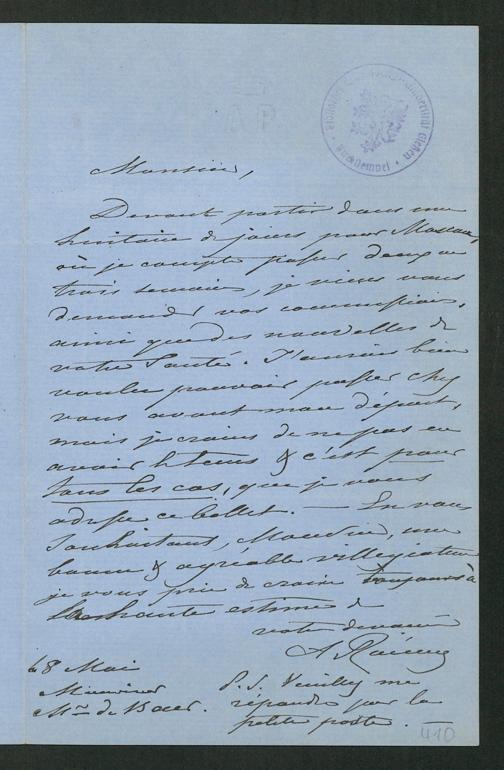 Monsieur,
Devant partir dans une
huitaine de jours pour Moscou,
où je compte passer deux ou
trois semaines, je viens vous
demander vos commissions,
ainsi que des nouvelles de
votre Santé. J'aurais bien
voulu pouvoir passer chez
vous avant mon départ,
mais je crains de ne pas en
avoir le tems & c'est pour
tous les cas, que je vous
adresse ce billet. — En vous
souhaitant, Monsieur, une
bonne & agréable villégiature
je vous prie de croire toujours à
la haute estime de
votre dévoué
A.
48 Mai
Mr de Baer.
P.S. Veuillez me
répondre par la
petite poste. —
410